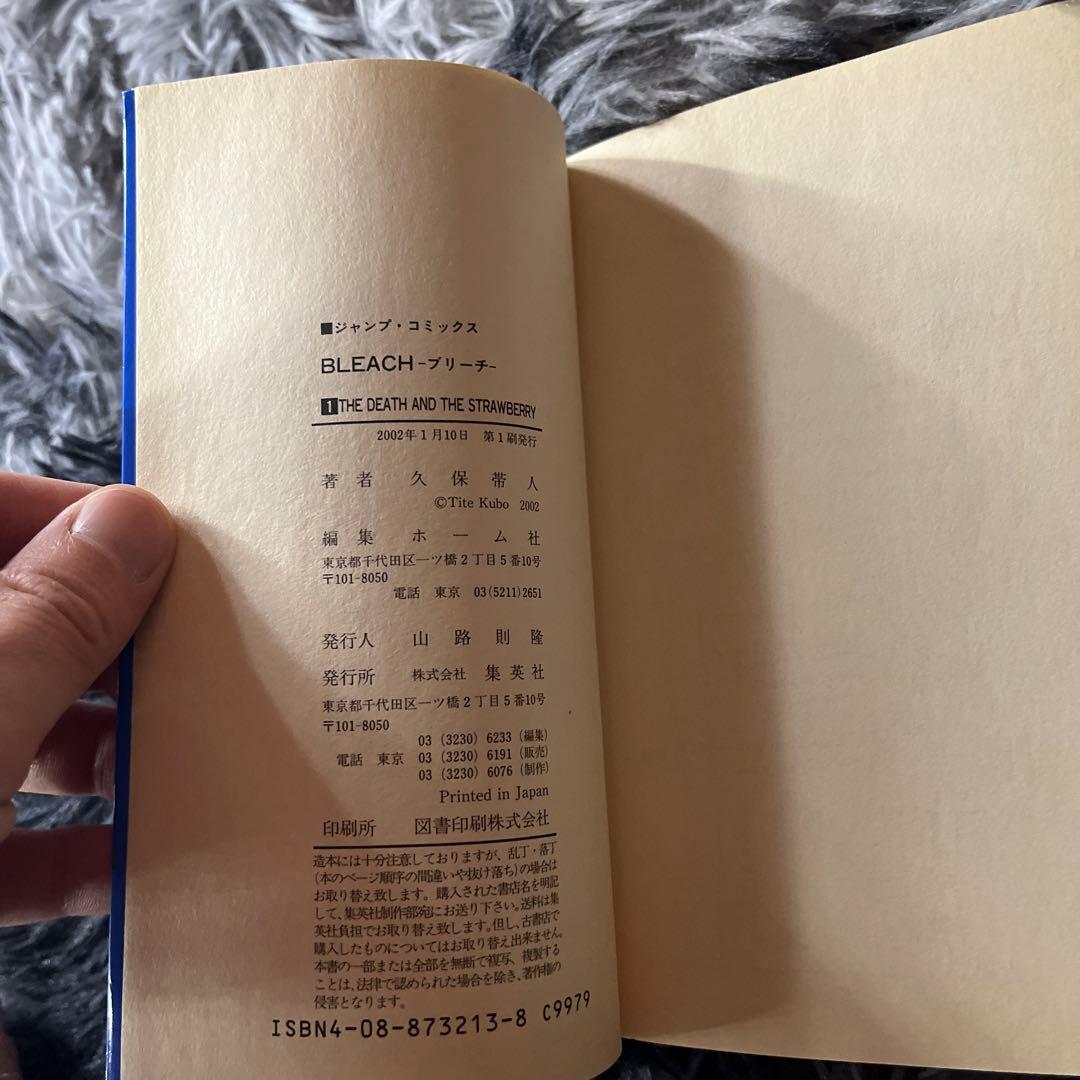 ■ジャンプ・コミックス
BLEACH-ブリーチ-
1 THE DEATH AND THE STRAWBERRY
2002年1月10日 第1刷発行
著者 久保帯人
©Tite Kubo 2002
編集 ホーム社
東京都千代田区一ツ橋2丁目5番10号
〒101-8050
電話 東京 03(5211)2651
発行人 山路則隆
発行所 株式会社 集英社
東京都千代田区一ツ橋2丁目5番10号
〒101-8050
03(3230)6233(編集)
電話 東京 03(3230)6191(販売)
03(3230)6076(制作)
Printed in Japan
印刷所 図書印刷株式会社
造本には十分注意しておりますが、乱丁・落丁
(本のページ順序の間違いや抜け落ち)の場合は
お取り替え致します。購入された書店名を明記
して、集英社制作部宛にお送り下さい。送料は集
英社負担でお取り替え致します。但し、古書店で
購入したものについてはお取り替え出来ません。
本書の一部または全部を無断で複写、複製する
ことは、法律で認められた場合を除き、著作権の
侵害となります。
ISBN4-08-873213-8 C9979